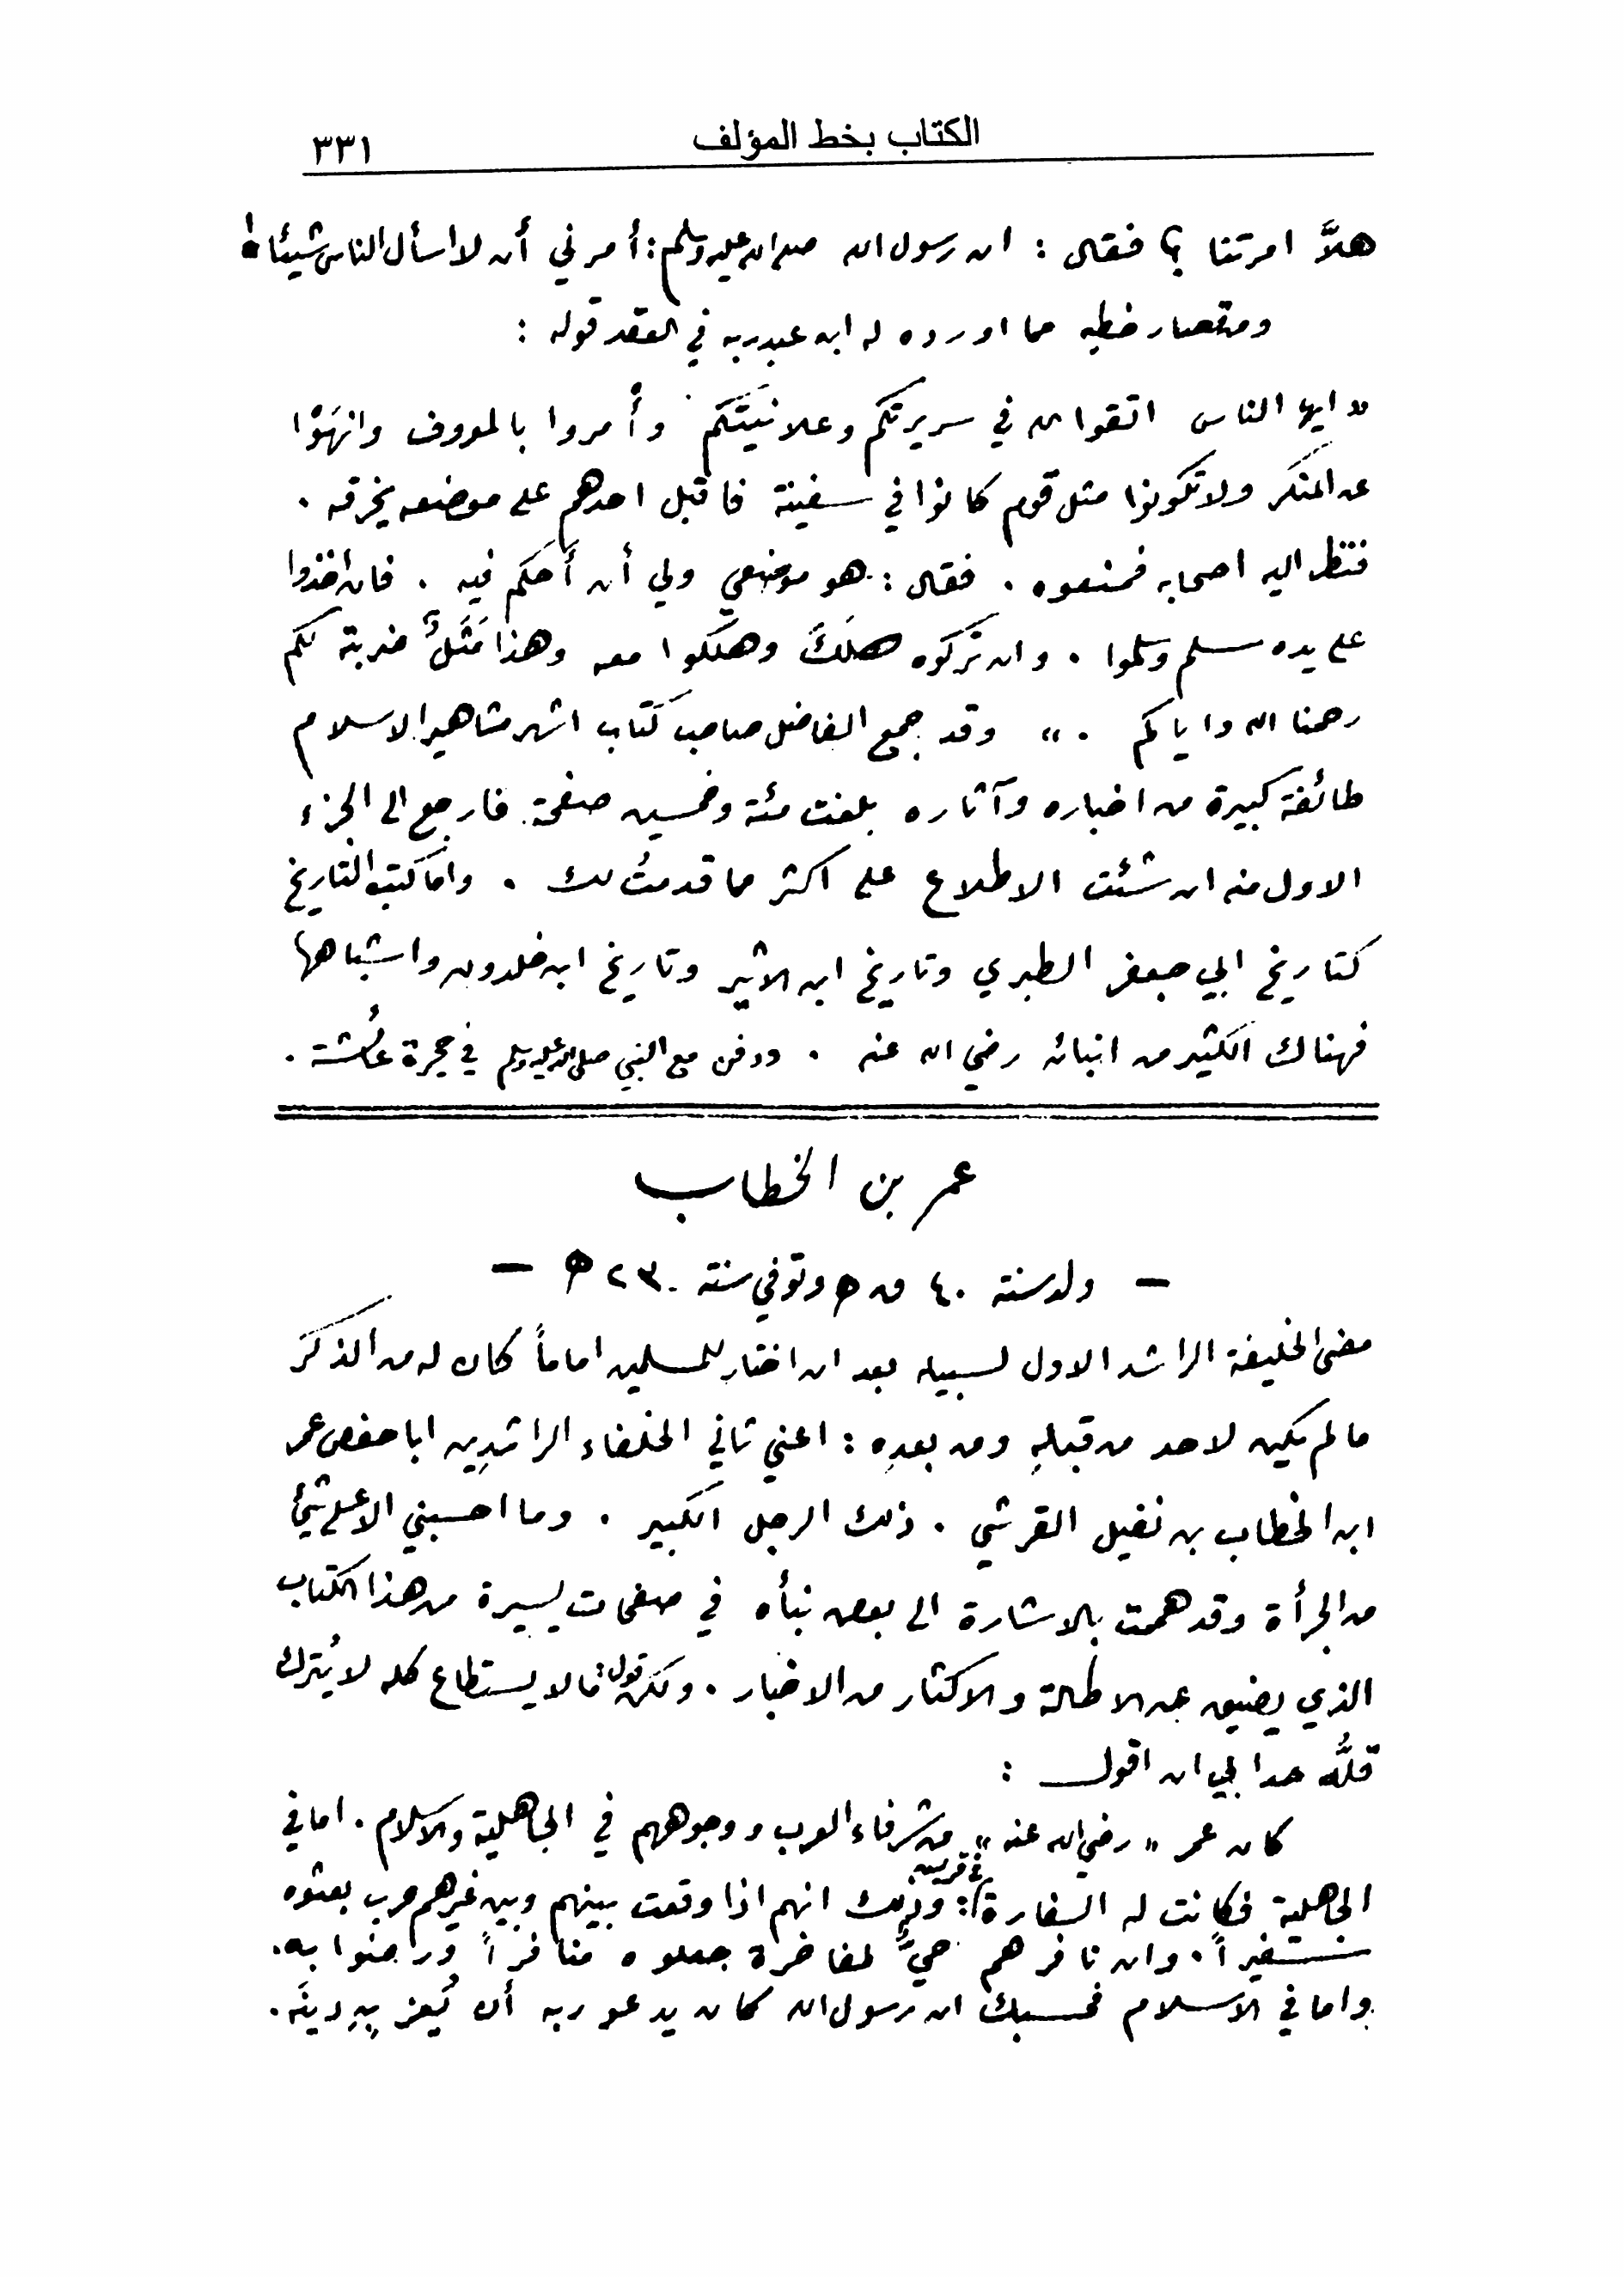 الكتاب بخط المؤلف ٣٣١
هلاَّ امرتنا ؟ فقال : ان رسول الله صلى الله عليه وسلم : أمرني أن لا اسأل الناس شيئاً
ومن قصار خطبه مما اورده له ابن عبد ربه في العقد قوله :
" ايها الناس اتقوا الله في سريرتكم وعلانيَتَكم وأْمروا بالمعروف وانهَوْا
عن المنكر ولا تكونوا مثل قوم كانوا في سفينة فاقبل احدهم على موضعه يخرقه .
فنظر اليه اصحابه فمنعوه . فقال : هو موضعي ولي أن أَحكم فيه . فان اخذوا
على يده سلم وسلموا . وان تركوه هلَكَ وهلكوا معه وهذا مَثَلٌ ضربته لكم
رحمنا الله واياكم . " وقد جمع الفاضل صاحب كتاب اشهر مشاهير الاسلام
طائفة كبيرة من اخباره وآثاره بلغت مئة وخمسين صفحة فارجع الى الجزء
الاول منه ان شئت الاطلاع على اكثر مما قدمتُ لك . واما كتب التاريخ
كتاريخ ابي جعفر الطبري وتاريخ ابن الاثير وتاريخ ابن خلدون واشباهها
فهناك الكثير من انبائه رضي الله عنه . ودفن مع النبي صلى الله عليه وسلم في حجرة عائشة .
عمر بن الخطاب
— ولد سنة ٤٠ ق ه وتوفي سنة ٢٣ ه —
مضى الخليفة الراشد الاول لسبيله بعد ان اختار للمسلمين اماماً كان له من الذكر
ما لم يكن لاحد من قبلهِ ومن بعدِه : اعني ثاني الخلفاء الراشدِين ابا حفص عمر
ابن الخطاب بن نفيل القرشي . ذلك الرجل الكبير . وما احسبني الا على شيءٍ
من الجرأة وقد هممت بالاشارة الى بعض نبأه في صفحات يسيرة من هذا الكتاب
الذي يضيق عن الاطالة والاكثار من الاخبار . ولكن قول : ما لا يستطاع كله لا يُترك
قلُّه حدا بي ان اقول :
كان عمر " رضي الله عنه " من شرفاء العرب ووجوههم في الجاهلية والاسلام . اما في
الجاهلية فكانت له السفارة في قريش : وذلك انهم اذا وقعت بينهم وبين غيرهم حرب بعثوه
سفيراً . وان نافرهم حيٌّ لمفاخرة جعلوه منافراً ورضوا به .
واما في الاسلام فحسبك ان رسول الله كان يدعو ربه أن يُعز بِهِ دينَه .